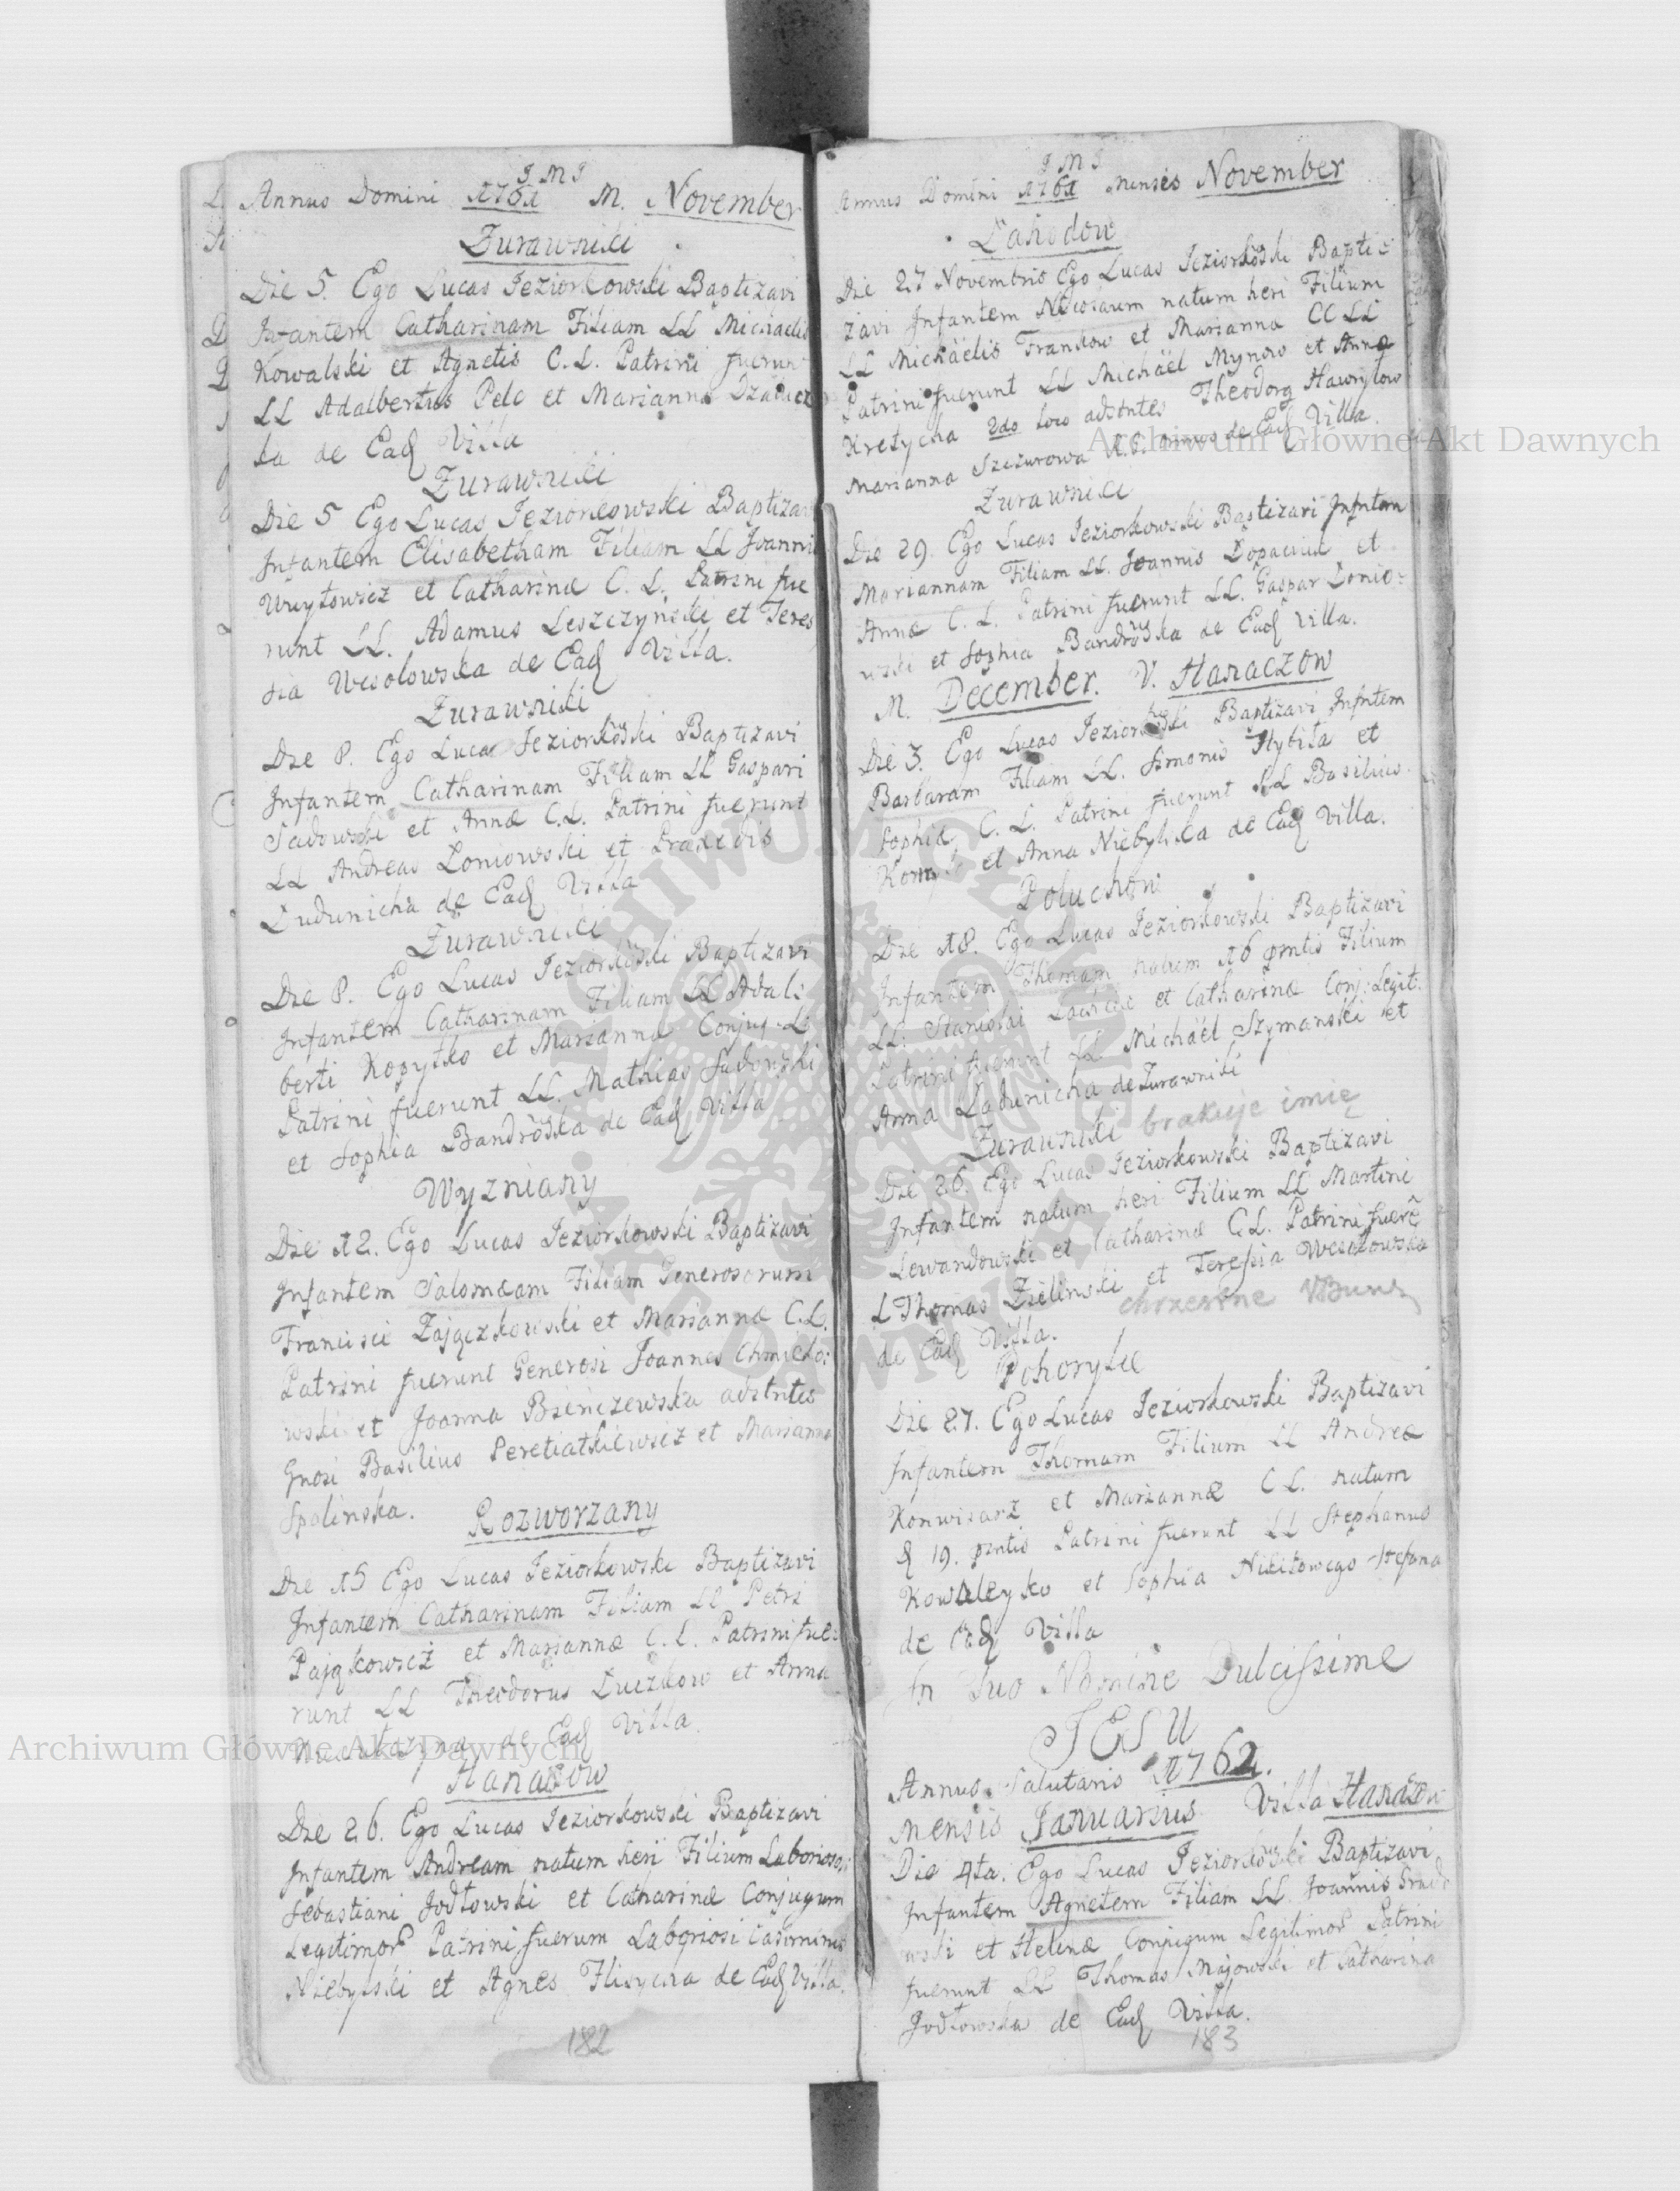 J M J
Annus Domini 1761 M. November
Zurawniki
Die 5. Ego Lucas Jeziorkowski Baptizavi
Infantem Catharinam Filiam LL Michaelis
Kowalski et Agnetis C. L. Patrini fuerunt
LL Adalbertus Pelc et Marianna
ka de Eadq Villa
Zurawniki
Die 5 Ego Lucas Jeziorkowski Baptizavi
Infantem Elisabetham Filiam LL Joannis
Woytowicz et Catharinæ C. L. Patrini fue
runt LL. Adamus Leszczynski et Teres
sia Wesolowska de Eadq Villa.
Zurawniki
Die 8. Ego Lucas Jeziorkowski Baptizavi
Infantem Catharinam Filiam LL Gaspari
Sadowski et Annæ C.L. Patrini fuerunt
LL Andreas Loniowski et Praxedis
Dudunicha de Eadq Villa
Zurawniki
Die 8. Ego Lucas Jeziorkowski Baptizavi
Infantem Catharinam Filiam LL Adal:
berti Kopytko et Mariannæ Conjug. L:
Patrini fuerunt LL. Mathias Sadowski
et Sophia Bandroska de Eadq Villa
Wyzniany
Die 12. Ego Lucas Jeziorkowski Baptizavi
Infantem Salomeam Filiam Generosorum
Francisci Zajączkowski et Mariannæ C.L.
Patrini fuerunt Generosi Joannes Chmielo:
wski et Joanna Bieniszewska adstntes
Gnosi Basilius Peretiatkiewicz et Marianna
Spalinska.
Rozworzany
Die 15 Ego Lucas Jeziorkowski Baptizavi
Infantem Catharinam Filiam LL Petri
Pająkowicz et Mariannæ C. L. Patrini fue:
runt LL Theodorus Luczkow et Anna
de Eadq Villa.
Hanaczow
Die 26. Ego Lucas Jeziorkowski Baptizavi
Infantem Andream natum heri Filium Laborioso:
Sebastiani Jodłowski et Catharinæ Conjugum
Legitimor Patrini fuerunt Laboriosi Casimirus
Niebylski et Agnes Hlisycha de Eadq Villa.
182
J M J
Annus Domini 1761 Mensis November
Lahodow
Die 27 Novembris Ego Lucas Jeziorkoski Bapti:
zavi Infantem Nicolaum natum heri Filium
LL Michäelis Frankow et Marianna CC LL
Patrini fuerunt LL Michäel Mynow et Anna
Kretycha 2do loco adstntes Theodorg Hawrylow
Marianna Szczurowa de Eadq Villa.
Zurawniki
Die 29. Ego Lucas Jeziorkowski Baptizavi Infntem
Mariannam Filiam LL. Joannis Łopaciuk et
Annæ C. L. Patrini fuerunt LL. Gaspar Lonio:
wski et Sophia Bandroska de Eadq Villa.
M. December. V. Hanaczow
Die 3. Ego Lucas Jeziorkoski Baptizavi Infntem
Barbaram Filiam LL. Simonis Hybiła et
Sophiæ C. L. Patrini fuerunt LL Basilius
et Anna Niebylska de Eadq Villa.
Poluchow
Die 18. Ego Lucas Jeziorkowski Baptizavi
Infantem Thomam natum 16 prntis Filium
LL. Stanislai et Catharinæ Conj: Legit:
Patrini fuerunt LL Michäel Szymanski et
Anna Ladunicha de Zurawniki
Zurawniki brakuje imię
Die 26. Ego Lucas Jeziorkowski Baptizavi
Infantem natum heri Filium LL Martini
Lewandowski et Catharinæ C.L. Patrini fuerẽ
L Thomas Zielinski et Teressia Wesolowska
chrzestne
de Eadq Villa.
Pohorylce
Die 27. Ego Lucas Jeziorkowski Baptizavi
Infantem Thomam Filium LL Andreæ
Konwisarz et Mariannæ C L. natum
d 19. prntis Patrini fuerunt LL Stephanus
Kowaleyko et Sophia Nikitowego Stefana
de Eadq Villa
In Tuo Nomine Dulcissime
JESU
Annus Salutaris 1762.
Mensis Januarius Villa Hanaczow
Die 4ta. Ego Lucas Jeziorkoski Baptizavi
Infantem Agnetem Filiam LL. Joannis
wski et Helenæ Conjugum Legitimor Patrini
fuerunt LL Thomas Majowski et Catharina
Jodłowska de Eadq Villa.
183
Archiwum Główne Akt Dawnych
Archiwum Główne Akt Dawnych
ARCHIWUM GŁÓWNE AKT DAWNYCH